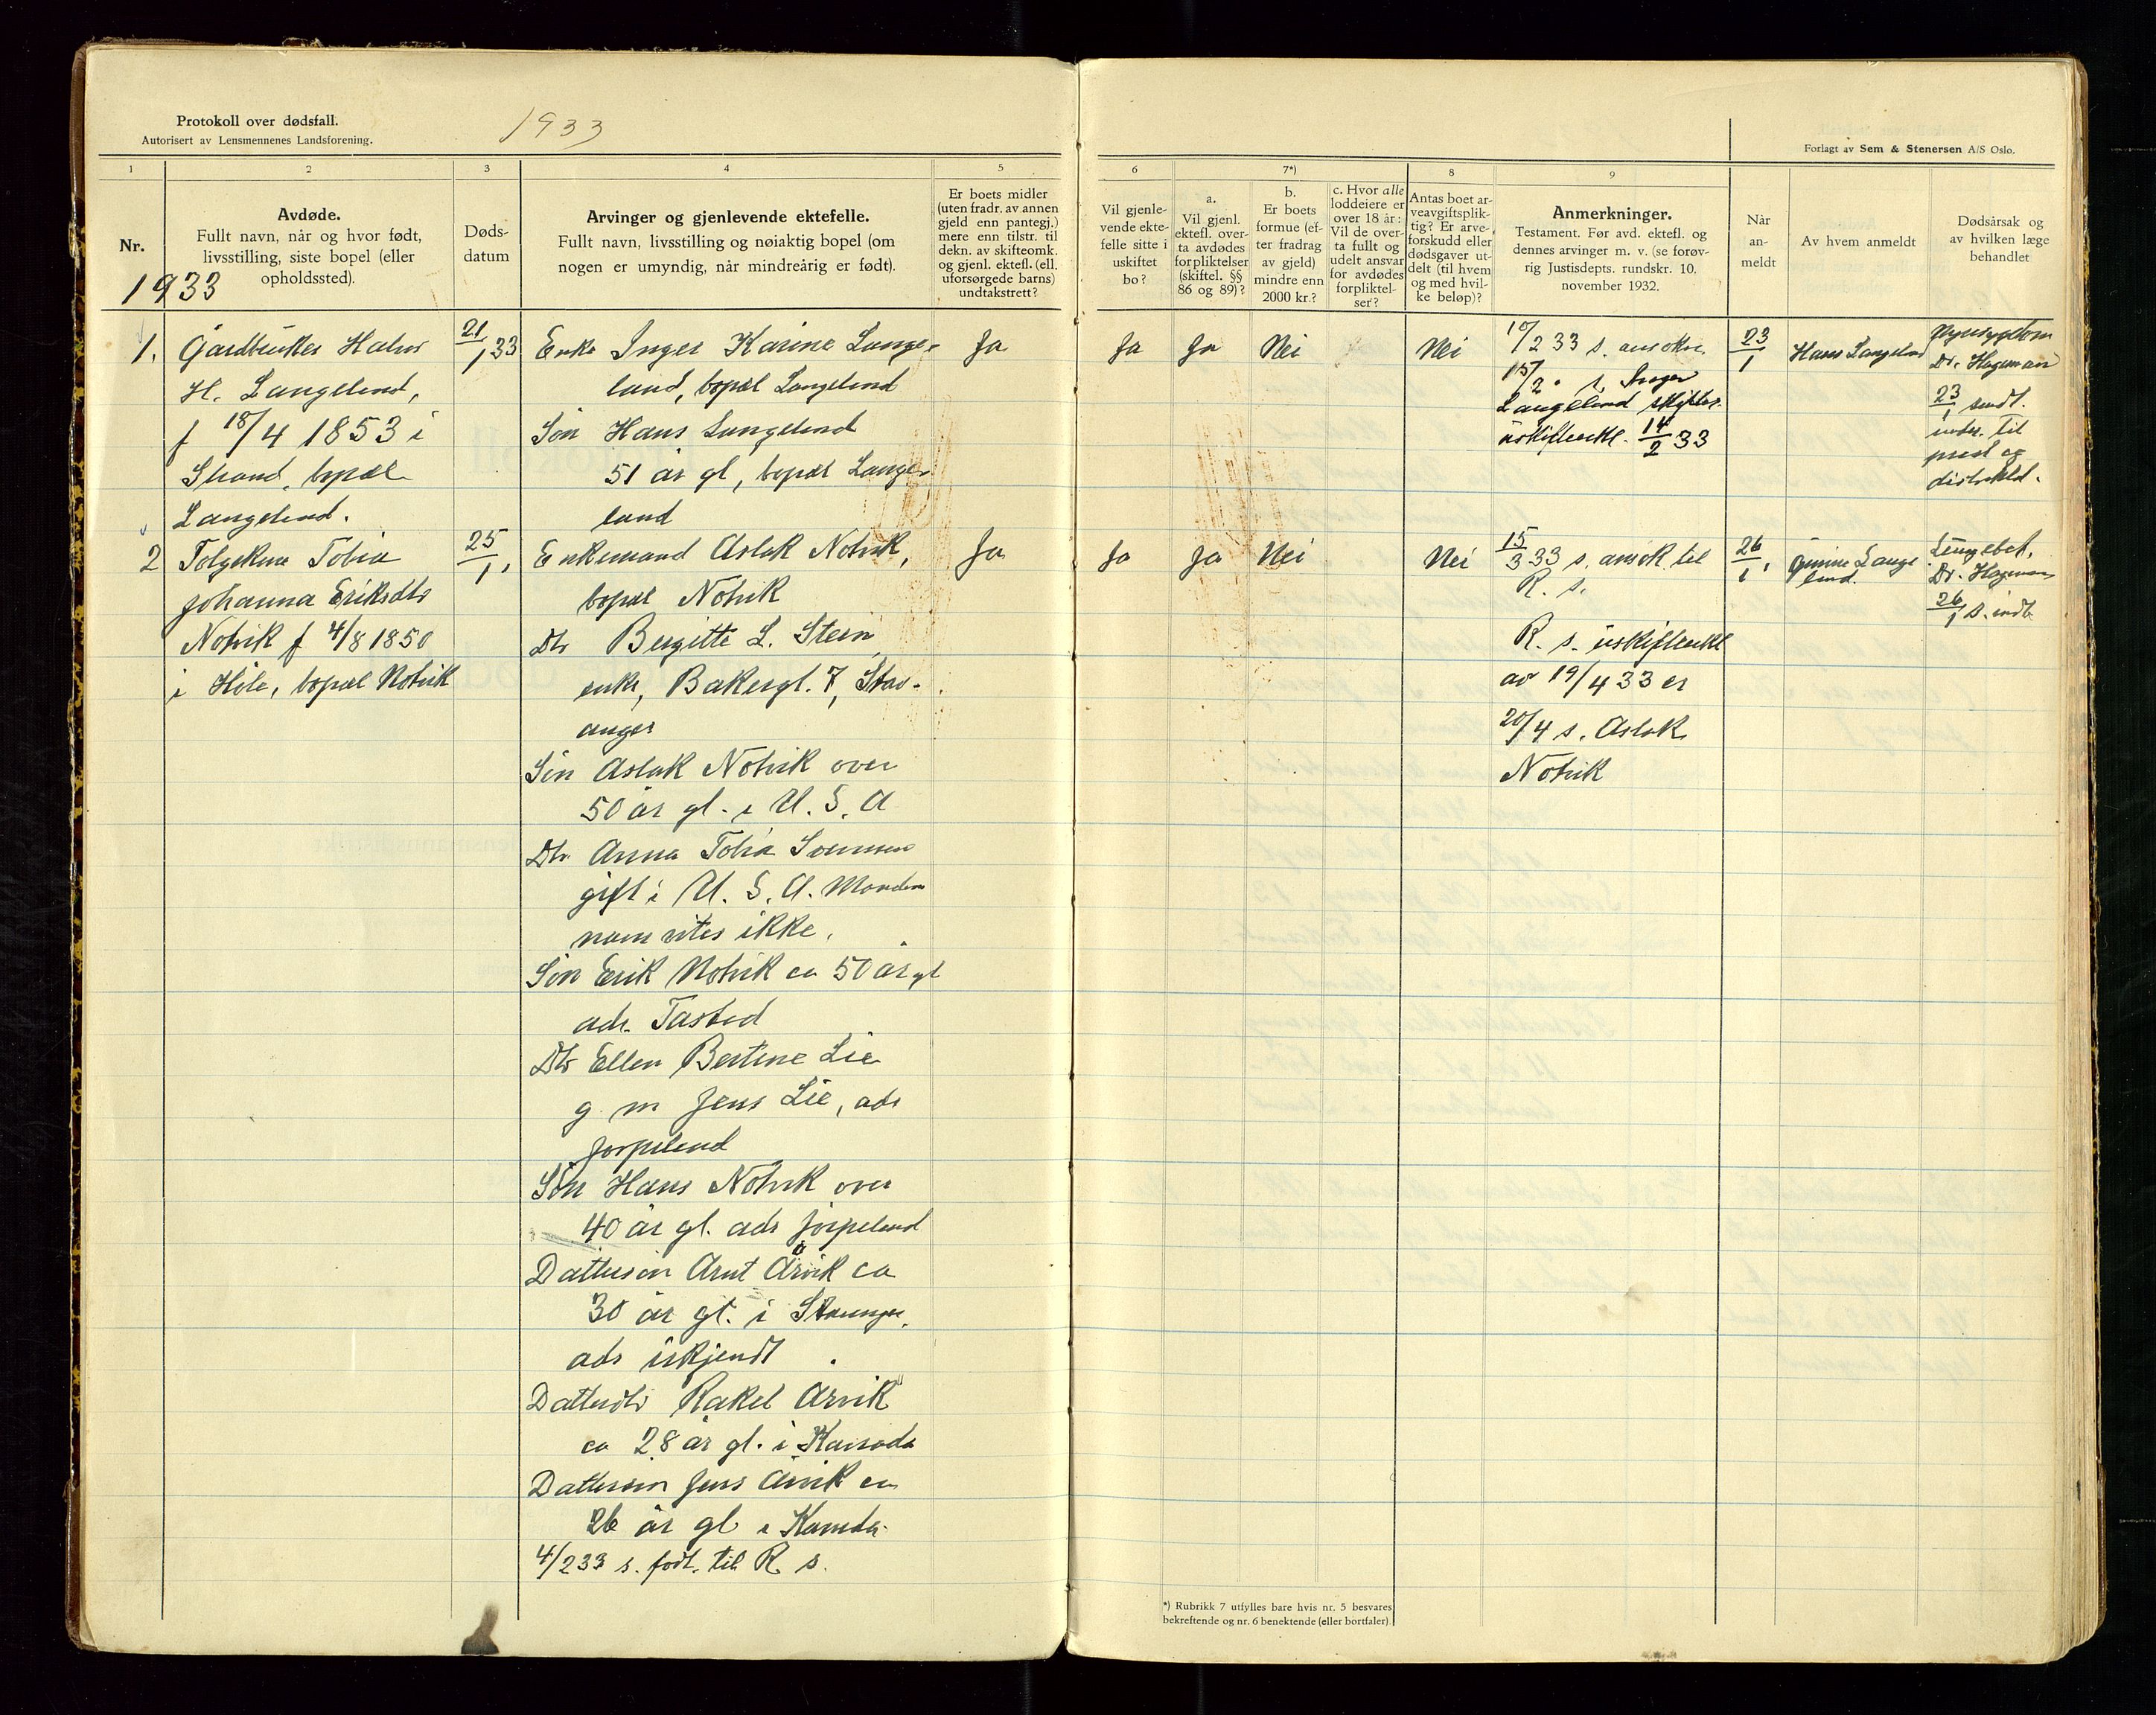 Protokoll over dødsfall.
Autorisert av Lensmennenes Landsforening.
1933
Forlagt av Sem & Stenersen A/S Oslo.
1
2
3
4
5
6
7*)
8
9
Nr.
1933
Avdøde.
Fullt navn, når og hvor født,
livsstilling, siste bopel (eller
opholdssted).
Døds-
datum
Arvinger og gjenlevende ektefelle.
Fullt navn, livsstilling og nøiaktig bopel (om
nogen er umyndig, når mindreårig er født).
Er boets midler
(uten fradr. av annen
gjeld enn pantegj.)
mere enn tilstr. til
dekn. av skifteomk.
og gjenl. ektef. (ell.
uforsørgede barns)
undtakstrett?
Vil gjenle-
vende ekte-
felle sitte i
uskiftet
bo?
a.
Vil gjenl.
ektefl. over-
ta avdødes
forpliktelser
(skiftel. §§
86 og 89)?
b.
Er boets
formue (ef-
ter fradrag
av gjeld)
mindre enn
2000 kr.?
c. Hvor alle
loddeiere er
over 18 år:
Vil de over-
ta fullt og
udelt ansvar
for avdødes
forpliktel-
ser?
Antas boet ar-
veavgiftsplik-
tig? Er arve-
forskudd eller
dødsgaver ut-
delt (til hvem
og med hvil-
ke beløp)?
Anmerkninger.
Testament. Før avd. ektefl. og
dennes arvinger m. v. (se forøv-
rig Justisdepts. rundskr. 10.
november 1932.
Når
an-
meldt
Av hvem anmeldt
Dødsårsak og
av hvilken læge
behandlet
1.
Gårdbruker Halvor
H. Langeland,
f 18/4 1853 i
Strand, bopæl
Langeland.
21/1 33
Enke Inger Karine Lange-
land, bopæl Langeland
Søn Hans Langeland
51 år gl, bopæl Lange-
land
Ja
Ja
Ja
Nei
Nei
10/2 33 s.
15/2 s. Inger
Langeland skifter.
uskifteerkl. 14/2 33
23/1
Hans Langeland
Dr. Hageman
23/1 sendt.
til
prest og
2
Tobia
Johanna Eriksdtr
Notvik f 4/8 1850
i Høle, bopæl Notvik
25/1.
Enkemand Aslak Notvik,
bopæl Notvik
Dtr Bergitte L. Steen
enke, Bakergt. 7, Stav-
anger
Søn Aslak Notvik over
50 år gl. i U. S. A
Dtr Anna Tobia
gift i U. S. A. Manden
navn vites ikke.
Søn Erik Notvik ca 50 år gl
adr. Tasted
Dtr Ellen Bertine Lie
g m Jens Lie, adr
Jørpeland
Søn Hans Notvik over
40 år gl. adr Jørpeland
Dattersøn Arnt Årvik ca
30 år gl. i Stavanger,
adr ukjendt.
Datterdtr Rakel Årvik
ca 28 år gl. i Kanada
Dattersøn Jens Årvik ca
26 år gl i Kanada.
4/2 33 s. fort. til R. s.
Ja
Ja
Ja
Nei
Nei
15/3 33 s. ansøk. til
R. s.
R. s. uskifteerkl
av 19/4 33 er
20/4 s. Aslak
Notvik
26/1.
Gunine Lange
land.
Lungebet.
Dr. Hageman
26/1 s. indb.
*) Rubrikk 7 utfylles bare hvis nr. 5 besvares
bekreftende og nr. 6 benektende (eller bortfaler).